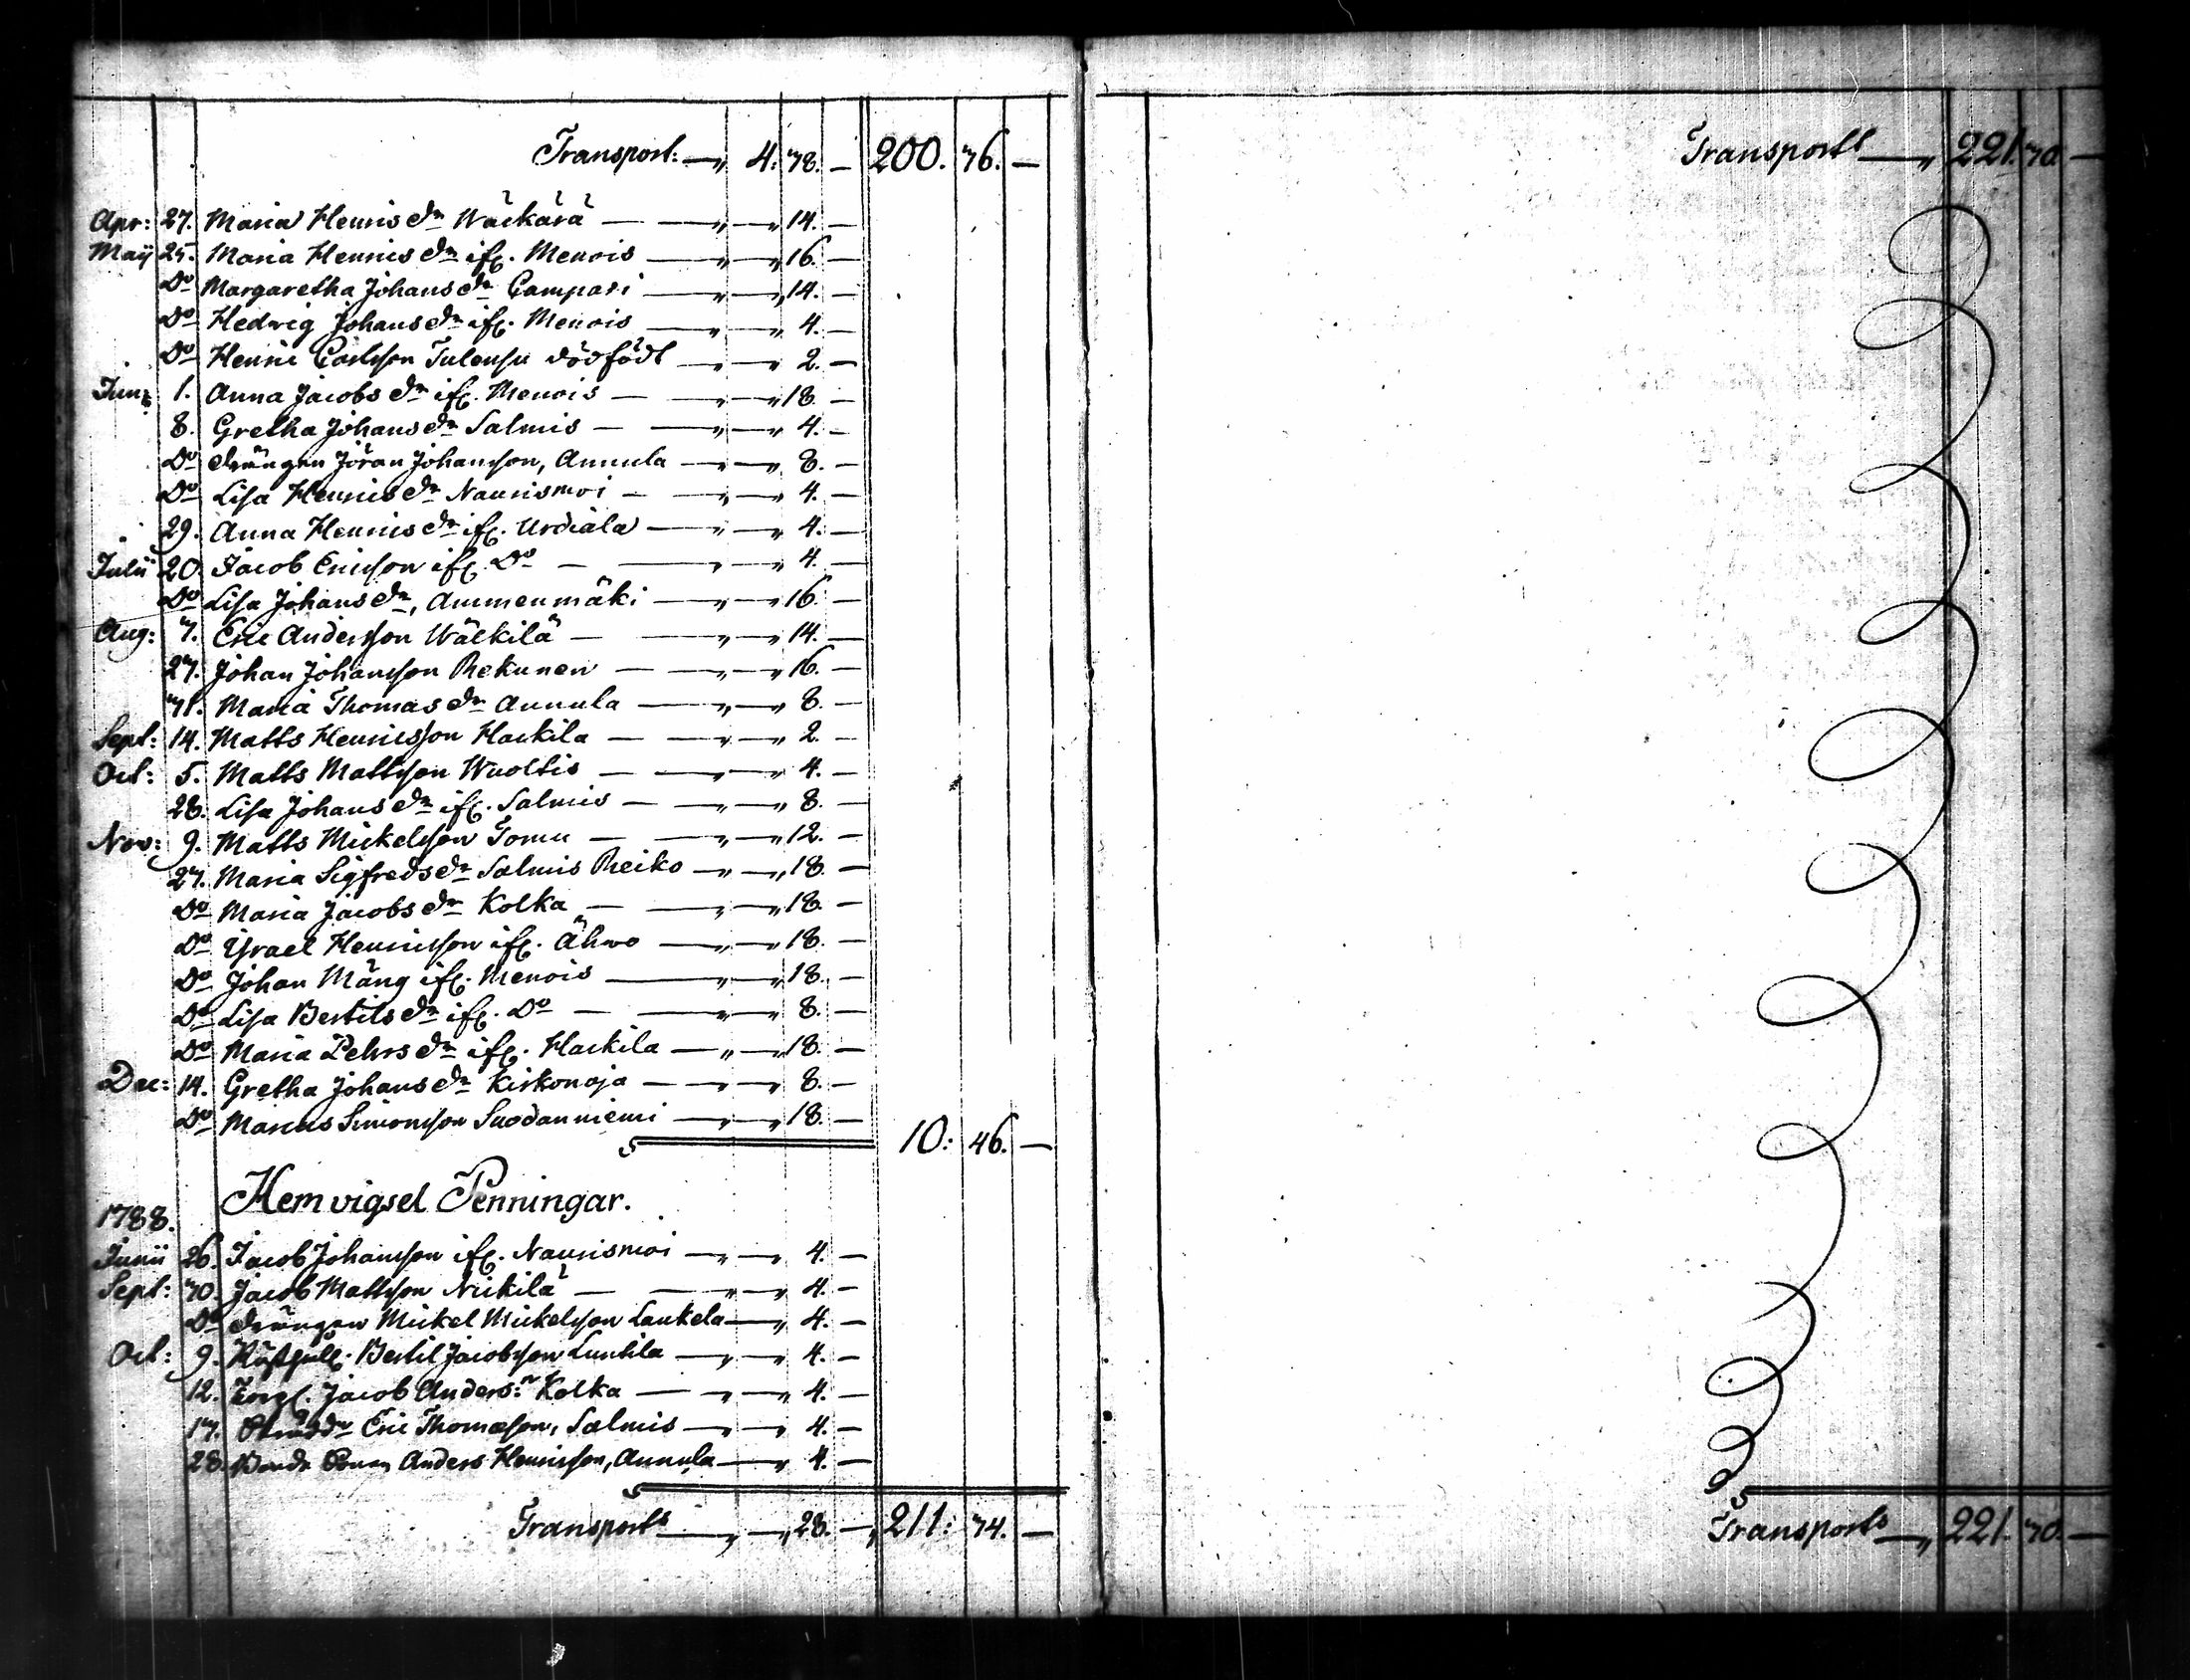 Transport: — „ 4. 38. — 200. 36. —
Apr: 27. Maria Henrics dr Wäckärä — „ — „ 14. —
Maij 25. Maria Henrics dr ifr. Menois — „ — „ 16. —
Do Margaretha Johans dr Campari — „ — „ 14. —
Do Hedvig Johans dr ifr. Menois — „ — „ 4. —
Do Henric Carlsson Tulensu dödfödt — „ — „ 2. —
Junii 1. Anna Jacobs dr ifr. Menois — „ — „ 18. —
8. Gretha Johans dr Salmis — „ — „ 4. —
Do drängen Jöran Johansson, Annula — „ — „ 8. —
Do Lisa Henrics dr Naurismoi — „ — „ 4. —
29. Anna Henrics dr ifr. Urdiala — „ — „ 4. —
Julii 20. Jacob Ericsson ifr. Do — „ — „ 4. —
Do Lisa Johans dr, Ammenmäki — „ — „ 16. —
Aug: 3. Eric Andersson Wälkilä — „ — „ 14. —
27. Johan Johansson Rekunen — „ — „ 16. —
31. Maria Thomas dr Annula — „ — „ 8. —
Sept: 14. Matts Henricsson Hackila — „ — „ 2. —
Oct: 5. Matts Mattsson Wuoltis — „ — „ 4. —
28. Lisa Johans dr ifr. Salmis — „ — „ 8. —
Nov: 9. Matts Mickelsson Tomu — „ — „ 12. —
23. Maria Sigfreds dr Salmis Reiko — „ — „ 18. —
Do Maria Jacobs dr Kolka — „ — „ 18. —
Do Israel Henricsson ifr. Ähvo — „ — „ 18. —
Do Johan Mäng ifr. Menois — „ — „ 18. —
Do Lisa Bertils dr ifr. Do — „ — „ 8. —
Do Maria Pehrs dr ifr. Hackila — „ — „ 18. —
Dec: 14. Gretha Johans dr Kirkonoja — „ — „ 8. —
Do Marcus Simonsson Suodanniemi — „ — „ 18. —
10: 46. —
Hemvigsel Penningar.
1788.
Junii 26. Jacob Johansson ifr. Naurismoi — „ — „ 4. —
Sept: 30. Jacob Mattsson Nickilä — „ — „ 4. —
Do drängen Mickel Mickelsson Laukela — „ 4. —
Oct: 9. Bertil Jacobsson Luntila — „ — „ 4. —
12. Jacob Anders:n Kolka — „ — „ 4. —
17. Eric Thomasson, Salmis — „ — „ 4. —
28. Anders Henricsson, Annula — „ 4. —
Transports — „ — „ 28. — „ 211: 34. —
Transports — „ 221. 30. —
Transports — „ 221. 30. —